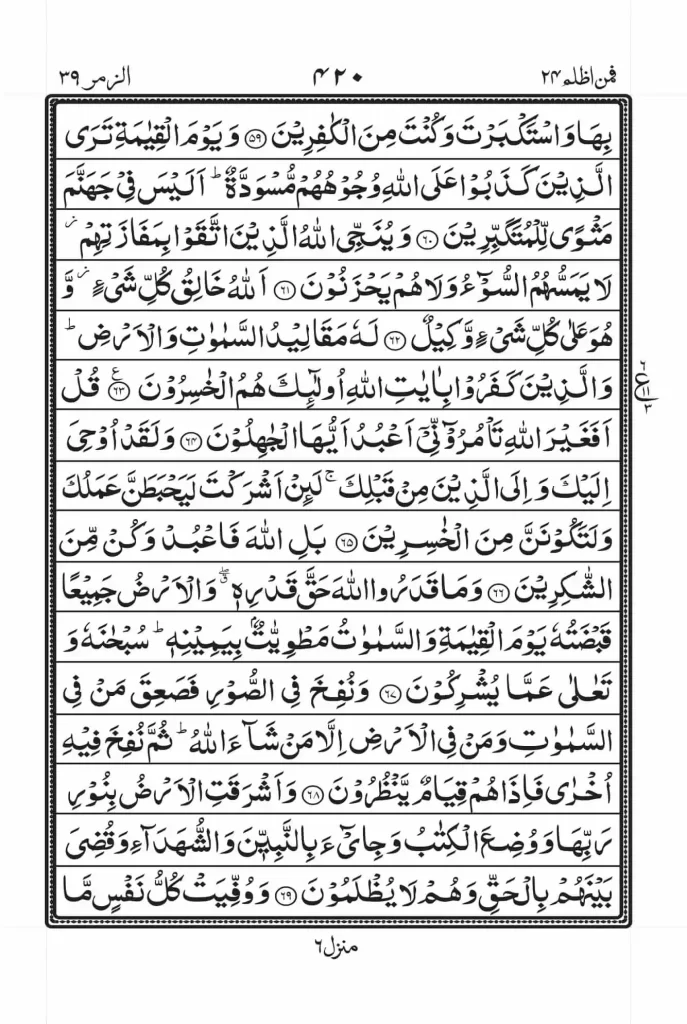 فمن اظلم ٢٤
۴۲۰
الزمر ٣٩
بِهَا وَاسْتَكْبَرْتَ وَكُنْتَ مِنَ الْكٰفِرِيْنَ ﴿۵۹﴾ وَيَوْمَ الْقِيٰمَةِ تَرَى
الَّذِيْنَ كَذَبُوْا عَلَى اللّٰهِ وُجُوْهُهُمْ مُّسْوَدَّةٌ ؕ اَلَيْسَ فِىْ جَهَنَّمَ
مَثْوًى لِّلْمُتَكَبِّرِيْنَ ﴿۶۰﴾ وَيُنَجِّى اللّٰهُ الَّذِيْنَ اتَّقَوْا بِمَفَازَتِهِمْ ز
لَا يَمَسُّهُمُ السُّوْٓءُ وَلَا هُمْ يَحْزَنُوْنَ ﴿۶۱﴾ اَللّٰهُ خَالِقُ كُلِّ شَىْءٍ ز وَّ
هُوَ عَلٰى كُلِّ شَىْءٍ وَّكِيْلٌ ﴿۶۲﴾ لَهٗ مَقَالِيْدُ السَّمٰوٰتِ وَالْاَرْضِ ؕ
وَالَّذِيْنَ كَفَرُوْا بِاٰيٰتِ اللّٰهِ اُولٰٓئِكَ هُمُ الْخٰسِرُوْنَ ﴿۶۳﴾ ع قُلْ
اَفَغَيْرَ اللّٰهِ تَاْمُرُوْٓنِّىْٓ اَعْبُدُ اَيُّهَا الْجٰهِلُوْنَ ﴿۶۴﴾ وَلَقَدْ اُوْحِىَ
اِلَيْكَ وَاِلَى الَّذِيْنَ مِنْ قَبْلِكَ ۚ لَئِنْ اَشْرَكْتَ لَيَحْبَطَنَّ عَمَلُكَ
وَلَتَكُوْنَنَّ مِنَ الْخٰسِرِيْنَ ﴿۶۵﴾ بَلِ اللّٰهَ فَاعْبُدْ وَكُنْ مِّنَ
الشّٰكِرِيْنَ ﴿۶۶﴾ وَمَا قَدَرُوا اللّٰهَ حَقَّ قَدْرِهٖ ۖق وَالْاَرْضُ جَمِيْعًا
قَبْضَتُهٗ يَوْمَ الْقِيٰمَةِ وَالسَّمٰوٰتُ مَطْوِيّٰتٌۢ بِيَمِيْنِهٖ ؕ سُبْحٰنَهٗ وَ
تَعٰلٰى عَمَّا يُشْرِكُوْنَ ﴿۶۷﴾ وَنُفِخَ فِى الصُّوْرِ فَصَعِقَ مَنْ فِى
السَّمٰوٰتِ وَمَنْ فِى الْاَرْضِ اِلَّا مَنْ شَآءَ اللّٰهُ ؕ ثُمَّ نُفِخَ فِيْهِ
اُخْرٰى فَاِذَا هُمْ قِيَامٌ يَّنْظُرُوْنَ ﴿۶۸﴾ وَاَشْرَقَتِ الْاَرْضُ بِنُوْرِ
رَبِّهَا وَوُضِعَ الْكِتٰبُ وَجِاىْٓءَ بِالنَّبِيّٖنَ وَالشُّهَدَآءِ وَقُضِىَ
بَيْنَهُمْ بِالْحَقِّ وَهُمْ لَا يُظْلَمُوْنَ ﴿۶۹﴾ وَوُفِّيَتْ كُلُّ نَفْسٍ مَّا
منزل ٦